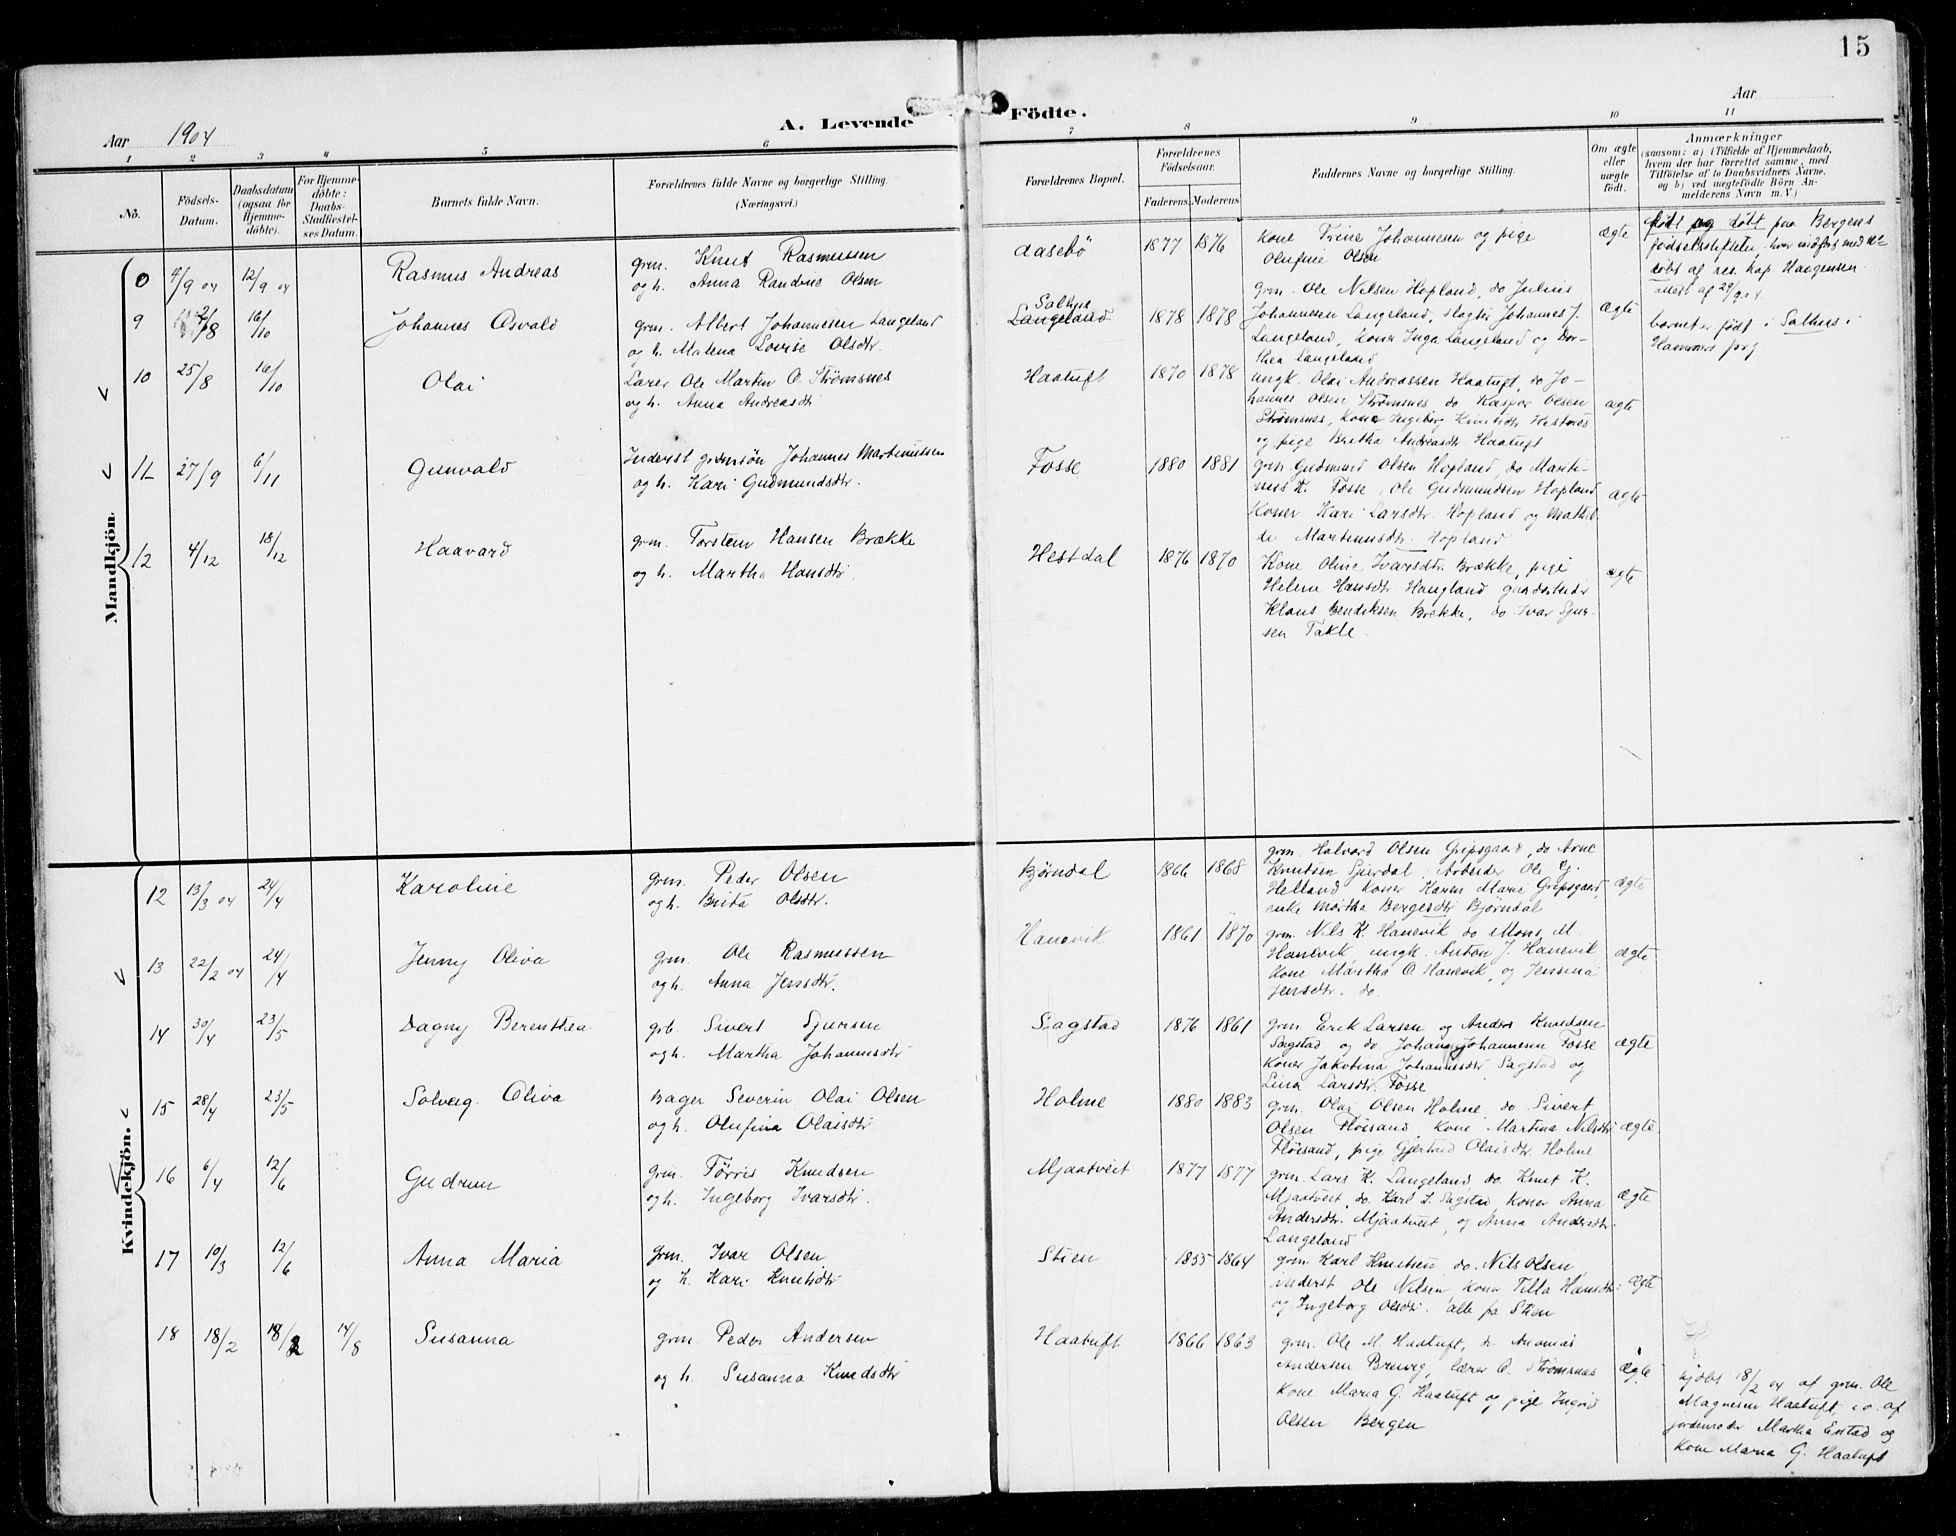 15
Aar 1904
A. Levende Födte.
Aar
1 2 3 4 5 6 7 8 9 10 11
No.
Födsels-
Datum.
Daabsdatum
(ogsaa for
Hjemme-
döbte).
For Hjemme-
döbte:
Daabs-
Stadfæstel-
ses Datum.
Barnets fulde Navn.
Forældrenes fulde Navne og borgerlige Stilling.
(Næringsvei.)
Forældrenes Bopæl.
Forældrenes
Födselsaar.
Faderens. Moderens.
Faddernes Navne og borgerlige Stilling.
Om ægte
eller
uægte
födt.
Anmærkninger
(saasom: a) i Tilfælde af Hjemmedaab,
hvem der har forrettet samme, med
Tilföielse af to Daabsvidners Navne,
og b) ved uægtefödte Börn An-
melderens Navn m. V.)
Mandkjön.
0 4/9 04 12/9 04 Rasmus Andreas
grm. Knut Rasmussen
og h. Anna Randine Olsen
Aasebö 1877 1876
Kone Trine Johannesen og pige
Olufine Olsen
ægte
født og døbt paa Bergens
fødselsstiftelse, hvor indført med
døbt af res. kap. Haagensen
attest af 29/9 04.
9 2/8 16/10 Johannes Osvald
grm. Albert Johannesen Langeland
og h. Malena Lovise Olsdtr.
Salhus
Langeland 1878 1878
grm. Ole Nilsen Hopland, do Julius
Johannesen Langeland, slagter Johannes J.
Langeland, Koner Inga Langeland og Dor-
thea Langeland
ægte
barnet er født i Salhus i
Hammer prg
10 25/8 16/10 Olai
Lærer Ole Martin O. Strømsnes
og h. Anna Andreasdtr
Haatuft 1870 1878
ungk. Olai Andreassen Haatuft, do Jo-
hannes Olsen Strømsnes, do Kaspar Olsen
Strømsnes, Kone Ingeborg Knutsdtr Hestenes
og pige Britha Andreasdtr Haatuft
ægte
11 27/9 6/11 Gunvald
Inderst grmsøn Johannes Martinussen
og h. Kari Gudmundsdtr.
Fosse 1880 1881
grm Gudmund Olsen Hopland, do Marti-
nus K. Fosse, Ole Gudmundsen Hopland
Koner Kari Larsdtr. Hopland og Mathil-
de Martinusdtr. Hopland
ægte
12 4/12 18/12 Haavard
grm. Torstein Hansen Brække
og h. Martha Hansdtr.
Hestdal 1876 1870
Kone Oline Ivarsdtr. Brække, pige
Helene Hansdtr Haugland gaardarbeider
Klaus Bendiksen Brække, do Ivar Sjur-
sen Takle.
ægte
Kvindekjön.
12 13/3 04 24/4 Karoline
grm. Peder Olsen
og h. Brita Olsdtr.
Bjørndal 1866 1868
grm. Halvard Olsen Gripsgaard, do Arne
Knutsen Gjerdal, Arbeider Ole Ej.
Helland Koner Karen Marie Gripsgaard,
enke Martha Bergesdtr Bjørndal
ægte
13 22/2 04 24/4 Jenny Oliva
grm. Ole Rasmussen
og h. Anna Jensdtr.
Hanevik 1861 1870
grm. Nils K. Hanevik do Mons M.
Hanevik, ungk. Anton J. Hanevik
Kone Martha O Hanevik, og Jensina
Jensdtr. do.
ægte
14 30/4 23/5 Dagny Berenthea
grb. Sivert Sjursen
og h. Martha Johannesdtr
Sagstad 1876 1861
grm. Erik Larsen og Anders Knudsen
Sagstad og do Johan Johannesen Fosse
Koner Jakobina Johannesdtr Sagstad og
Lina Larsdtr. Fosse
ægte
15 28/4 23/5 Solveig Oliva
Bager Severin Olai Olsen
og h. Olufina Olaisdtr
Holme 1880 1883
grm. Olai Olsen Holme, do. Sivert
Olsen Fløisand, Kone Martina Nilsdtr
Fløisand, pige Gjertrud Olaisdtr Holme
ægte
16 6/4 12/6 Gudrun
grm. Tørris Knudsen
og h. Ingeborg Ivarsdtr.
Mjaatveit 1877 1877
grm. Lars K. Langeland do. Knut K.
Mjaatveit, do. Karl L. Sagstad, Koner Anna
Andersdtr. Mjaatveit, og Anna Andersdtr.
Langeland
ægte
17 10/3 12/6 Anna Maria
grm. Ivar Olsen
og h. Kari Knutsdtr
Stien 1855 1864
grm. Karl Knutsen do. Nils Olsen,
inderst Ole Nilsen Kone Tilla Hansdtr:
og Ingeborg Olsdtr. alle fra Stien
ægte
18 18/2 18/2 14/8 Susanna
grm. Peder Andersen
og h. Susanna Knudsdtr
Haatuft 1866 1863
grm. Ole M. Haatuft, do Andreas
Andersen Breivig, lærer O. Strømsnes
Kone Maria G. Haatuft og pige Ingrid
Olsen Bergen
ægte
hjdbt 18/2 04 af grm. Ole
Magnesen Haatuft, i o. af
jordemoder Martha Eistad og
Kone Maria G. Haatuft